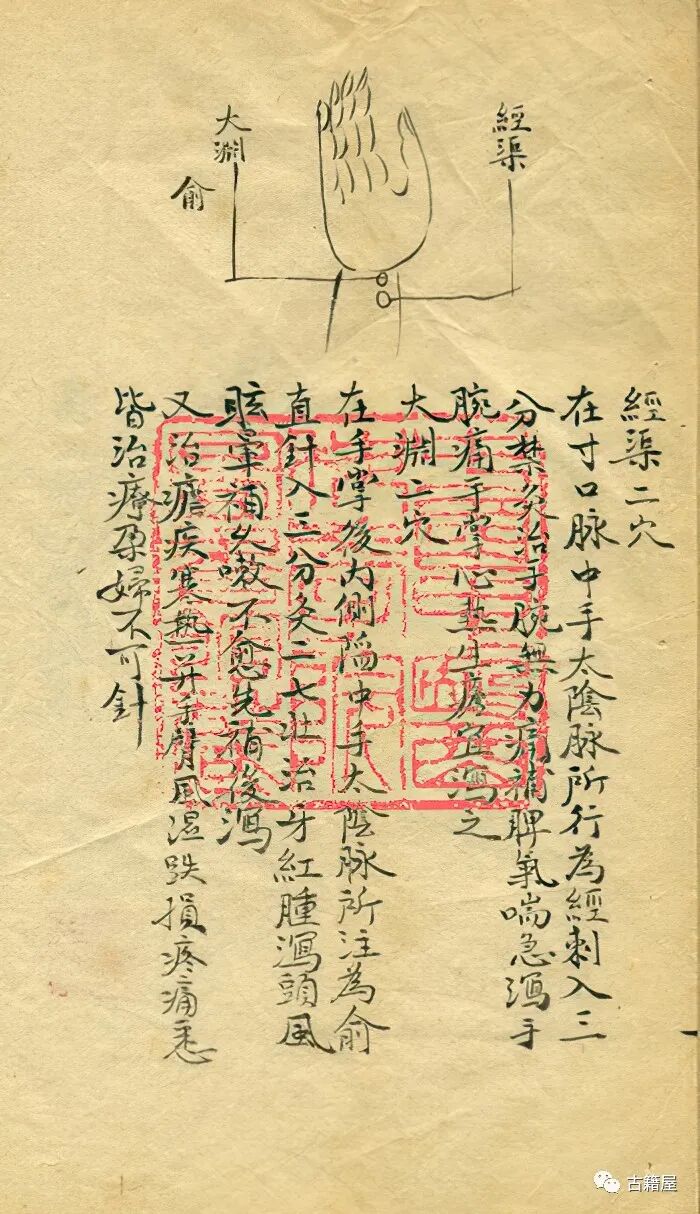 經渠
大淵
俞
經渠二穴
在寸口脉中手太陰脉所行為經刺入三
分禁灸治手腕無力瀉補脾氣喘急瀉手
腕痛手掌心熱生瘡宜瀉之
大淵二穴
在手掌後内側陷中手太陰脉所注為俞
直針入三分灸二七壯治牙紅腫瀉頭風
眩暈補久嗽不愈先補後瀉
又治瘧疾寒熱并手臂風湿跌損疼痛悉
皆治療孕婦不可針
古籍屋